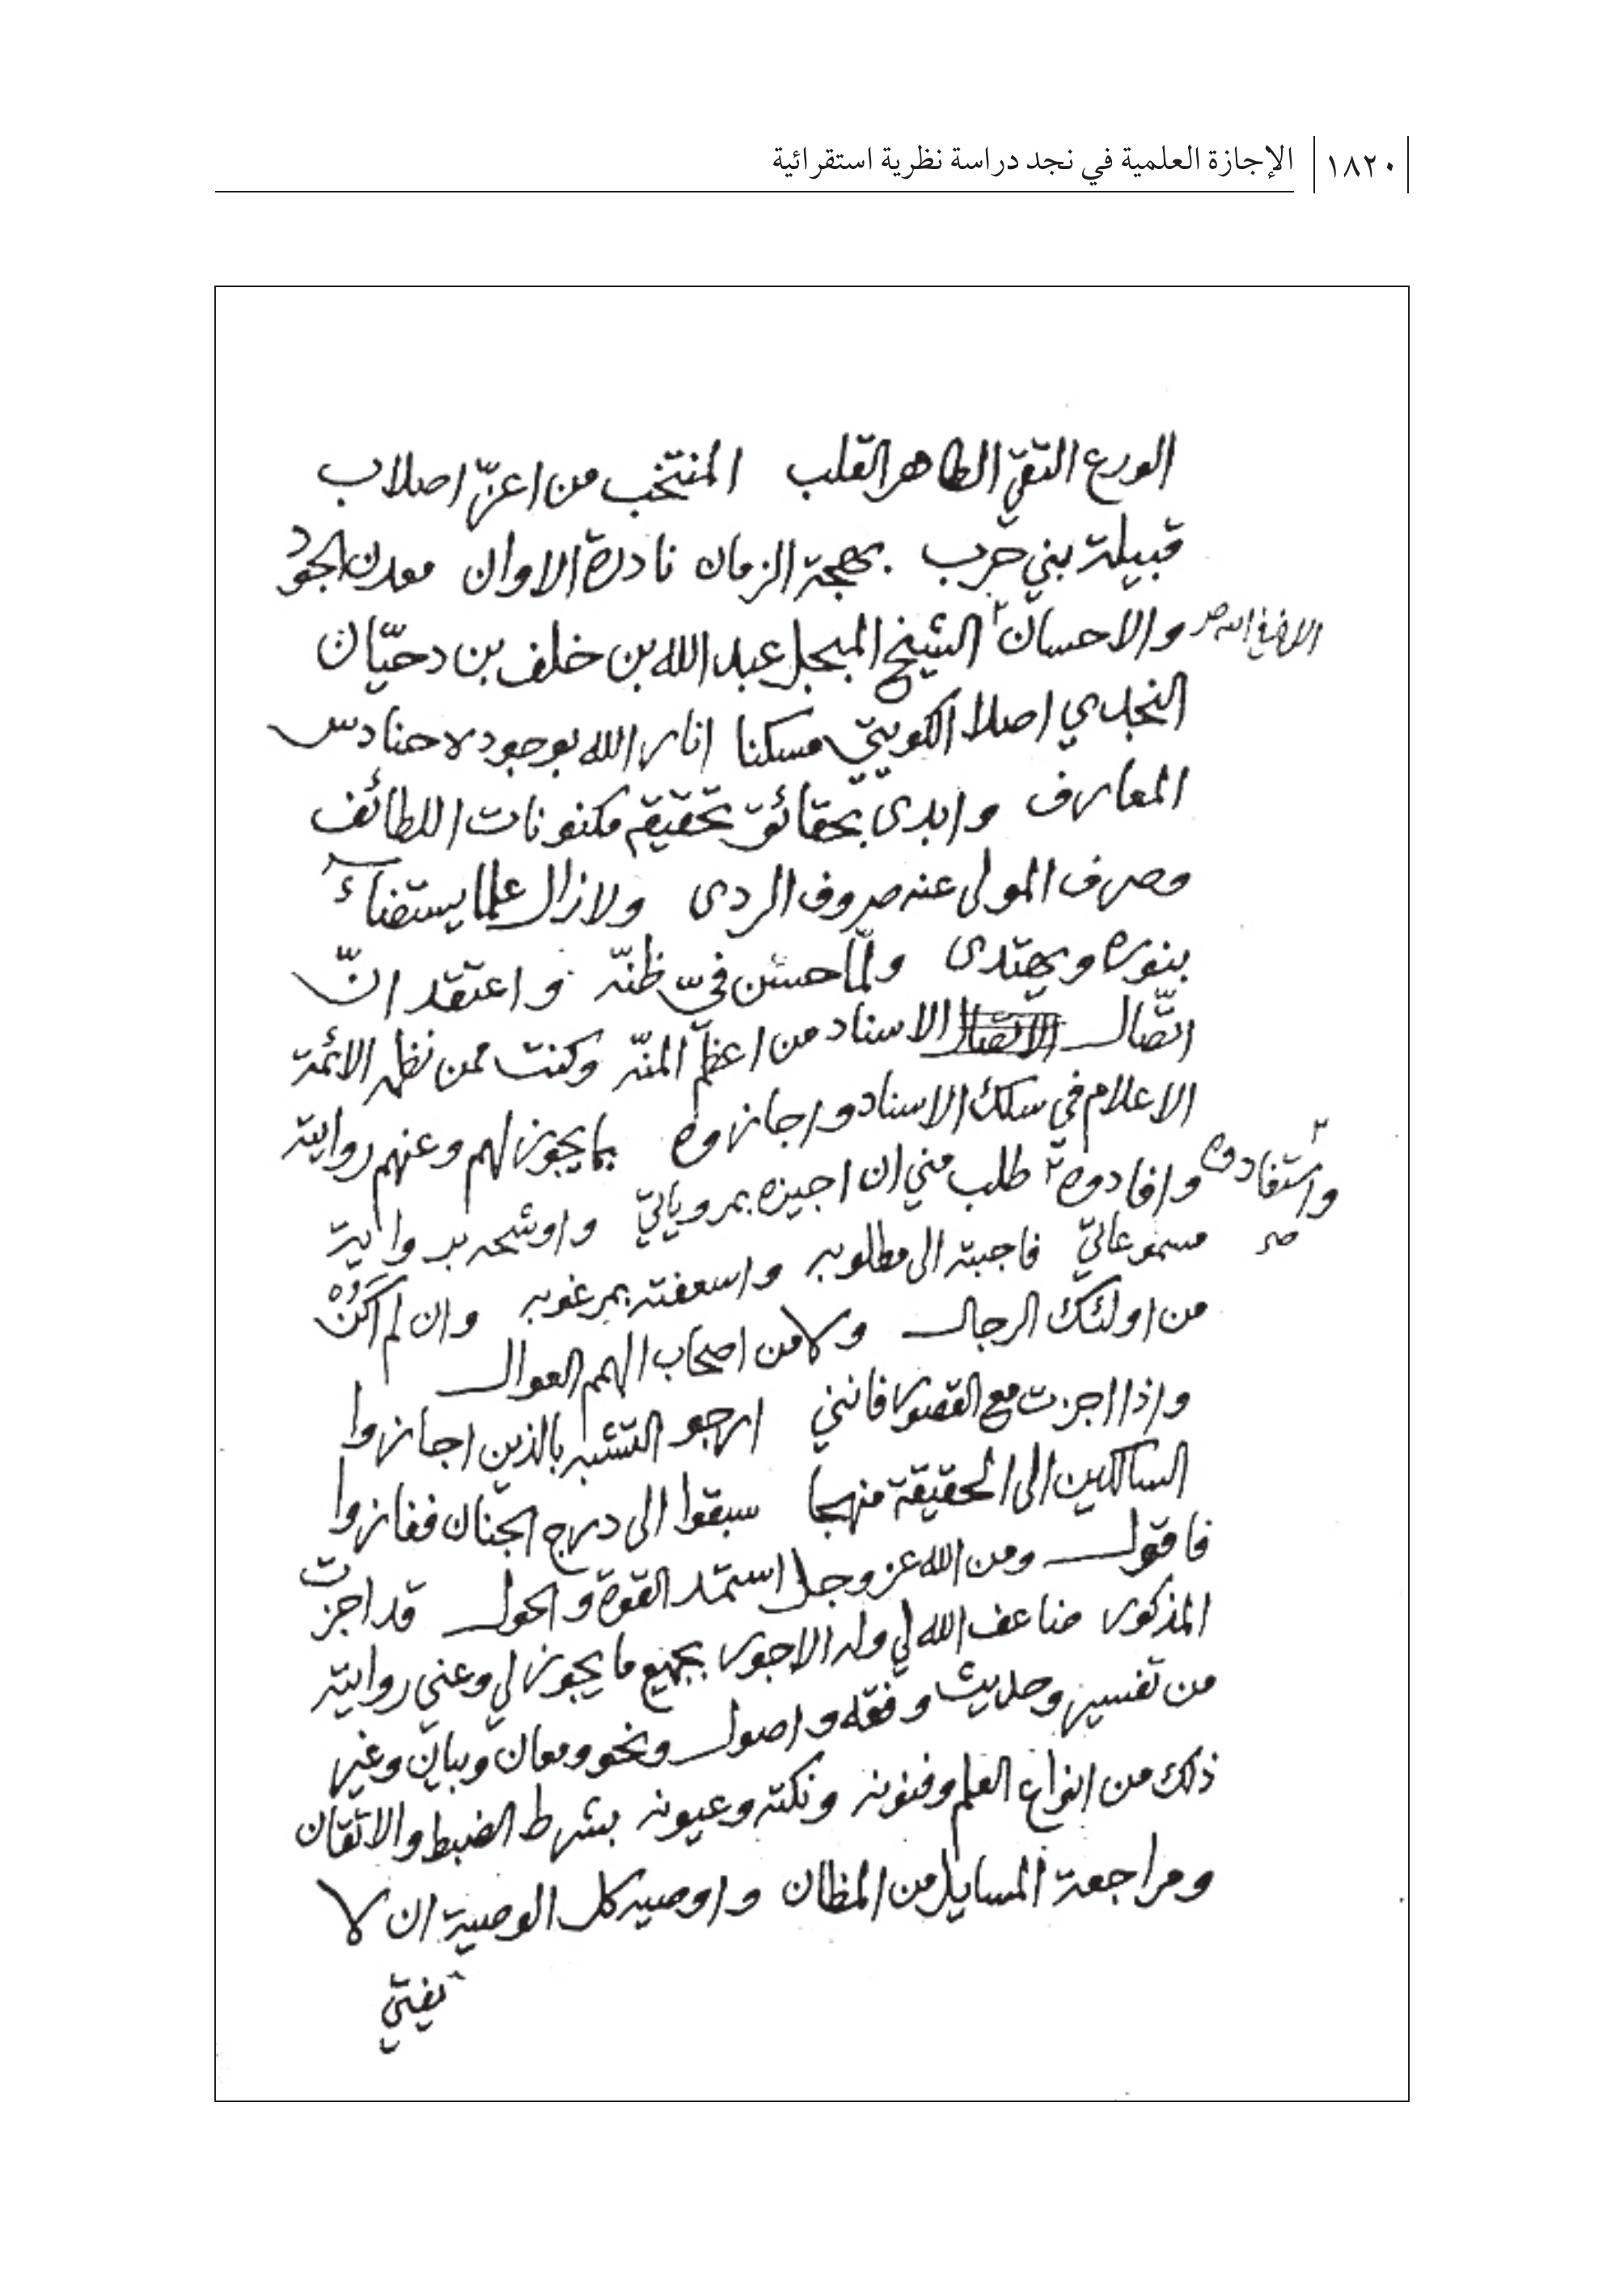 ١٨٢٠ الإجازة العلمية في نجد دراسة نظرية استقرائية
الورع التقيّ الطاهر القلب المنتخب من اعزّ اصلاب
قبيلة بني حرب بهجة الزمان نادرة الاوان معدن الجود
والاحسان الشيخ المبجل عبد الله بن خلف بن دحيّان
النجدي اصلا الكويتيّ مسكنا انار الله بوجوده حنادس
المعارف وابدى بحقائق تحقيقه مكنونات اللطائف
وصرف المولى عنه صروف الردى ولازال علما يستضآء
بنوره ويهتدى ولمّا حسن فيّ ظنّه واعتقد انّ
اتصّال الاسناد من اعظم المنّه وكنت ممن نظمه الائمة
الاعلام في سلك الاسناد واجازوه بما يجوز لهم وعنهم روايته
وافادوه طلب مني ان اجيزه بمروياتيّ واوشحه برواية
واستفادوه صح
مسموعاتيّ فاجبته الى مطلوبه واسعفته بمرغوبه وان لم اكن
من اولئك الرجال ولا من اصحاب الهمم العوال
واذا اجزت مع القصور فانني ارجو التشبه بالذين اجازوا
السالكين الى الحقيقة منهجا سبقوا الى درج الجنان ففازوا
فاقول ومن الله عز وجل استمد القوة والحول قد اجزت
المذكور ضاعف الله لي وله الاجور بجميع ما يجوز لي وعني روايته
من تفسير وحديث وفقه واصول ونحو ومعان وبيان وغير
ذلك من انواع العلم وفنونه ونكته وعيونه بشرط الضبط والاتقان
ومراجعة المسايل من المظان واوصيه كل الوصية ان لا
يفتي